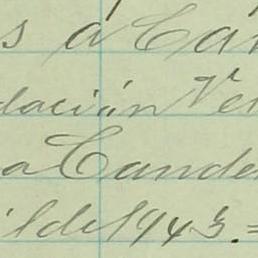 s á Cán
dación Ve
a Cande
il de 1943.=